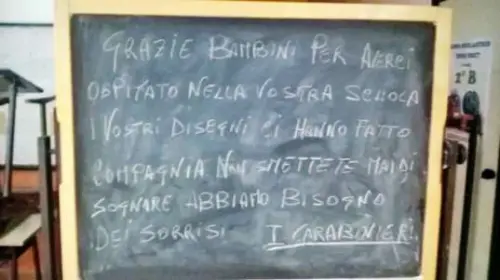 GRAZIE BAMBINI PER AVERCI
OSPITATO NELLA VOSTRA SCUOLA
I VOSTRI DISEGNI CI HANNO FATTO
COMPAGNIA NON SMETTETE MAI DI
SOGNARE ABBIAMO BISOGNO
DEI SORRISI I CARABINIERI
1° B